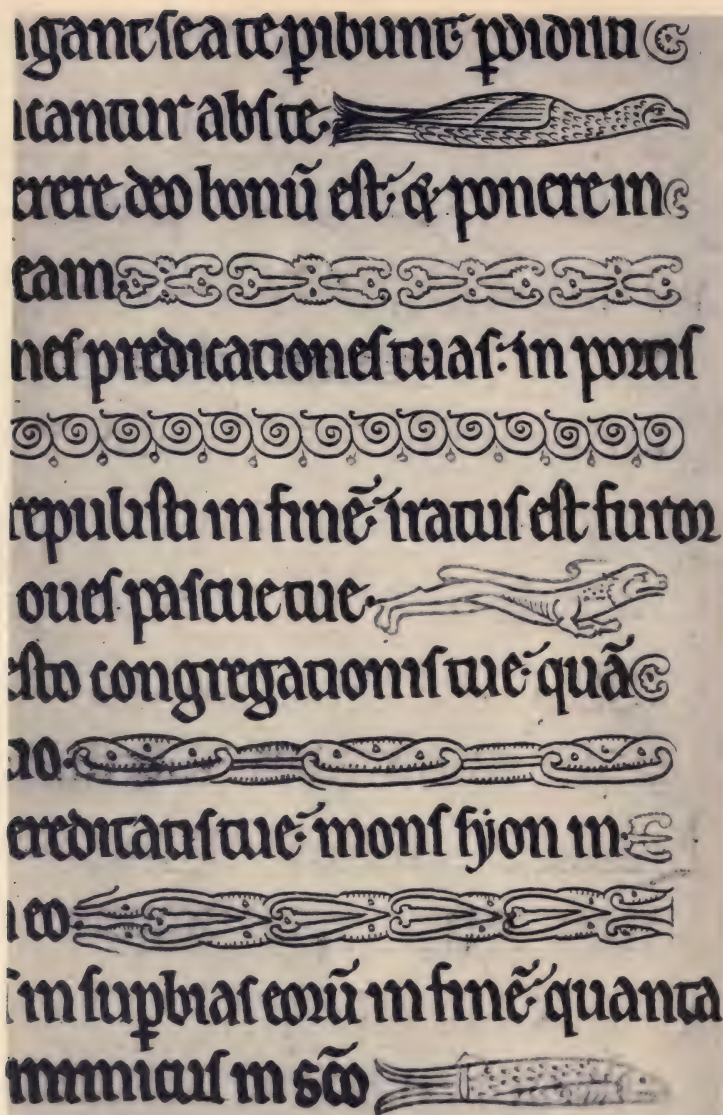 igant se a te ꝑibunt ꝑdidiſti
icantur abſ te.
erere deo bonū eſt ⁊ ponere in
eam.
neſ predicationeſ tuaſ: in portiſ
repuliſti in finē iratuſ eſt furor
oueſ paſcue tue.
eſto congregationiſ tue quā
io.
ereditatiſ tue monſ ſyon in
n eo
ſ in ſuꝑbiaſ eorū in finē quanta
inimicuſ in sc̄o